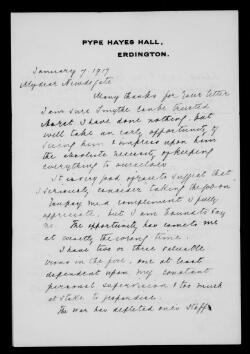 PYPE HAYES HALL,
ERDINGTON.
January 7. 1917
My dear Newdegate
Many thanks for your letter
I am sure Smythe can be trusted
As yet I have done nothing, but
will take an early opportunity of
seeing him & impress upon him
the absolute necessity of keeping
everything to ourselves
It is very good of you to suggest that
I seriously consider taking the job on
You pay me a compliment I fully
appreciate, but I am bound to say
no. The opportunity has come to me
at exactly the wrong time.
I have two or three valuable
irons in the fire, one at least
dependent upon my constant
personal supervision & too much
at stake to jeopardise.
The war has depleted one's staff &